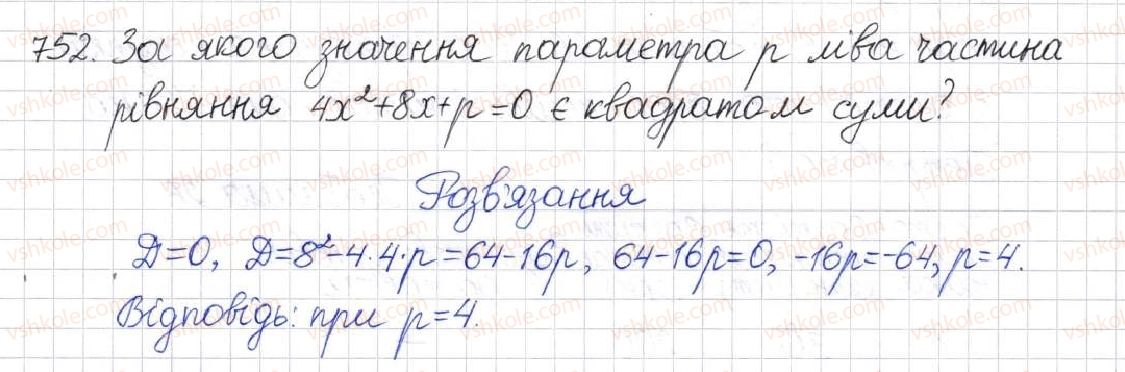 752. За якого значення параметра p ліва частина
рівняння 4x²+8x+p=0 є квадратом суми?
Розв'язання
D=0, D=8²-4·4·p=64-16p, 64-16p=0, -16p=-64, p=4.
Відповідь: при p=4.